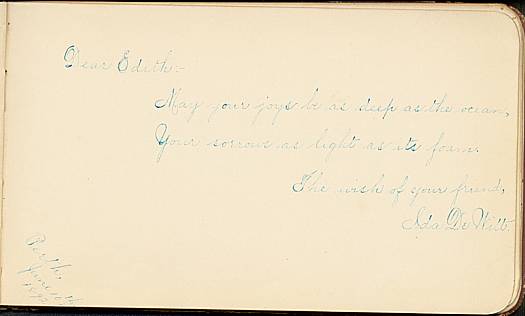 Dear Edith:-
May your joys be as deep as the ocean,
Your sorrows as light as its foam.
The wish of your friend,
Ida De Witt.
Perth,